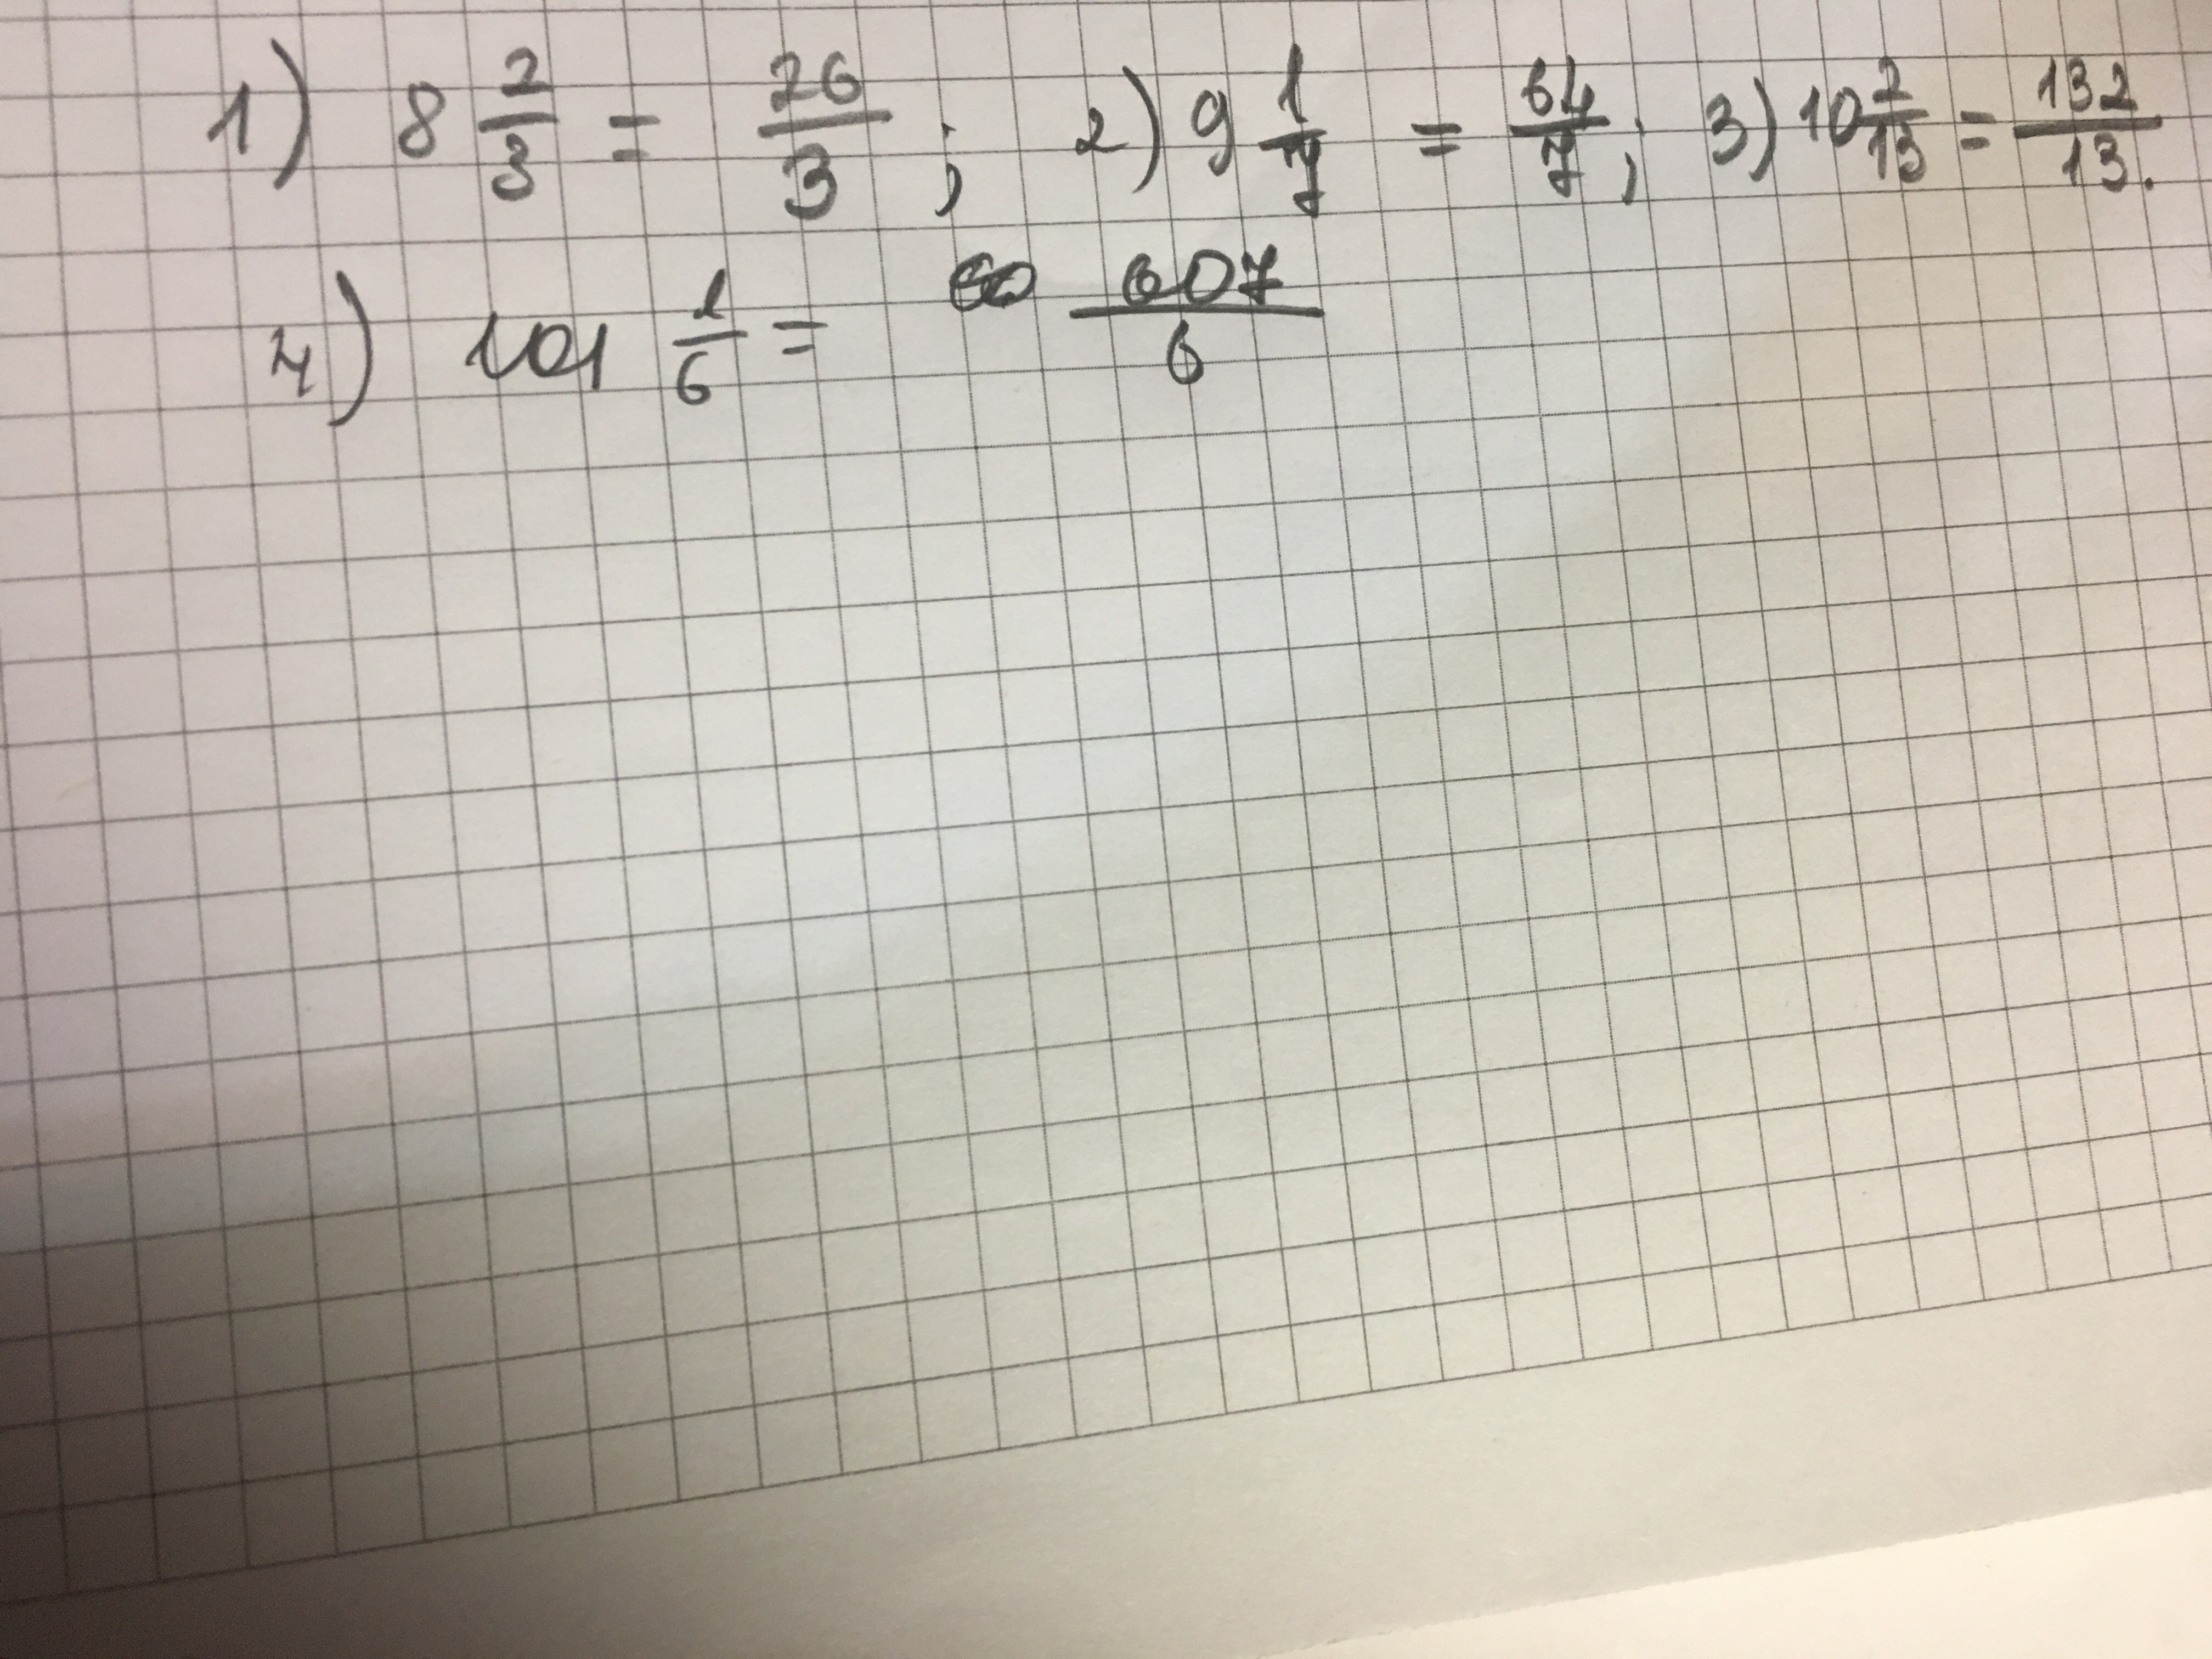 1) 8 2/3 = 26/3 ; 2) 9 1/7 = 64/7 ; 3) 10 2/13 = 132/13.
4) 101 1/6 = 607/6